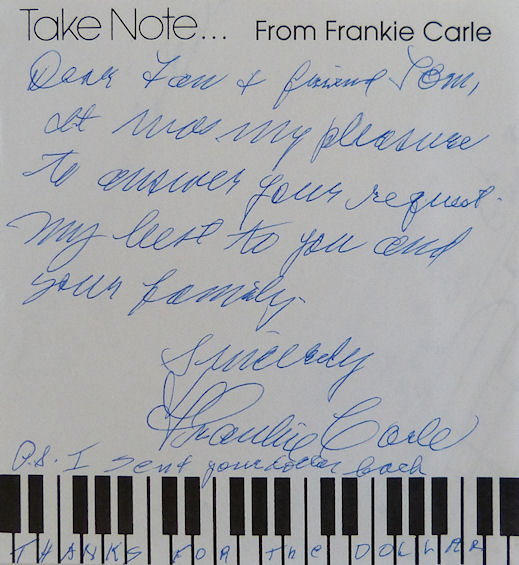 Take Note... From Frankie Carle
Dear Fan & friend Tom,
It was my pleasure
to answer your request.
My best to you and
your family.
Sincerely
Frankie Carle
P.S. I sent your dollar back
THANKS FOR THE DOLLAR